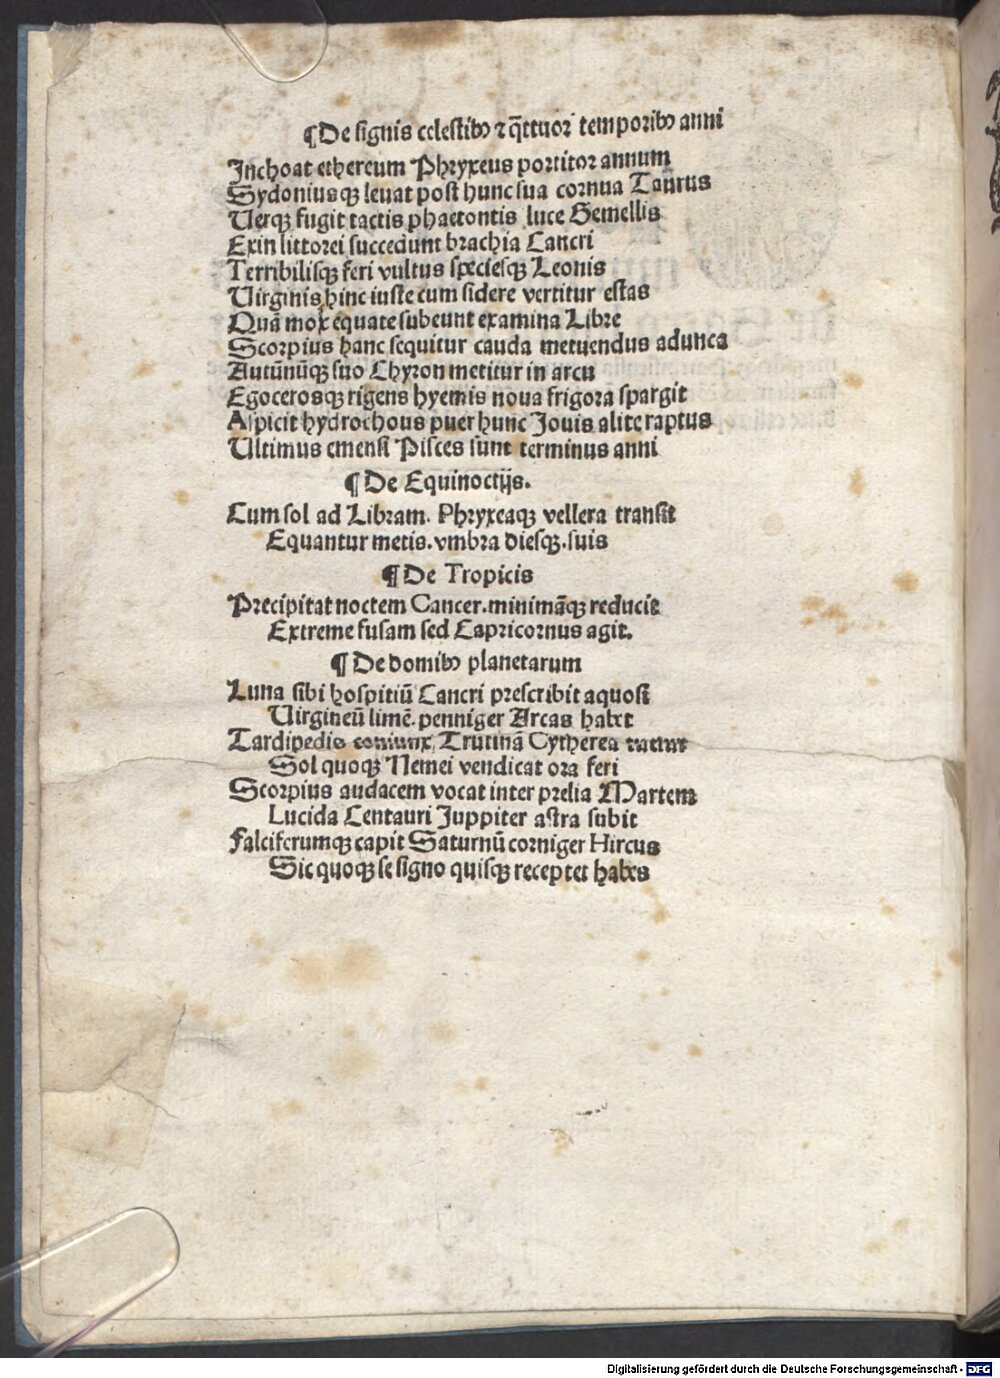 ¶De signis celestibꝰ ⁊ q̄ttuor temporibꝰ anni
Inchoat ethereum Phryxeus portitor annum
Sydoniusqꝫ leuat post hunc sua cornua Taurus
Uerqꝫ fugit tactis phaetontis luce Gemellis
Exin littorei succedunt brachia Cancri
Terribilisqꝫ feri vultus speciesqꝫ Leonis
Uirginis hinc iuste cum sidere vertitur estas
Quā mox equate subeunt examina Libre
Scorpius hanc sequitur cauda metuendus adunca
Autūnūqꝫ suo Chyron metitur in arcu
Egocerosqꝫ rigens hyemis noua frigora spargit
Aspicit hydrochous puer hunc Jouis alite raptus
Ultimus emensi Pisces sunt terminus anni
¶De Equinoctijs.
Cum sol ad Libram. Phryxeaqꝫ vellera transit
Equantur metis. vmbra diesqꝫ. suis
¶De Tropicis
Precipitat noctem Cancer. minimāqꝫ reducit
Extreme fusam sed Capricornus agit.
¶De domibꝰ planetarum
Luna sibi hospitiū Cancri prescribit aquosi
Uirgineū limē. penniger Arcas habet
Tardipedis coniunx, Trutinā Cytherea tuetur
Sol quoqꝫ Nemei vendicat ora feri
Scorpius audacem vocat inter prelia Martem
Lucida Centauri Juppiter astra subit
Falciferumqꝫ capit Saturnū corniger Hircus
Sic quoqꝫ se signo quisqꝫ receptet habes
Digitalisierung gefördert durch die Deutsche Forschungsgemeinschaft - DFG